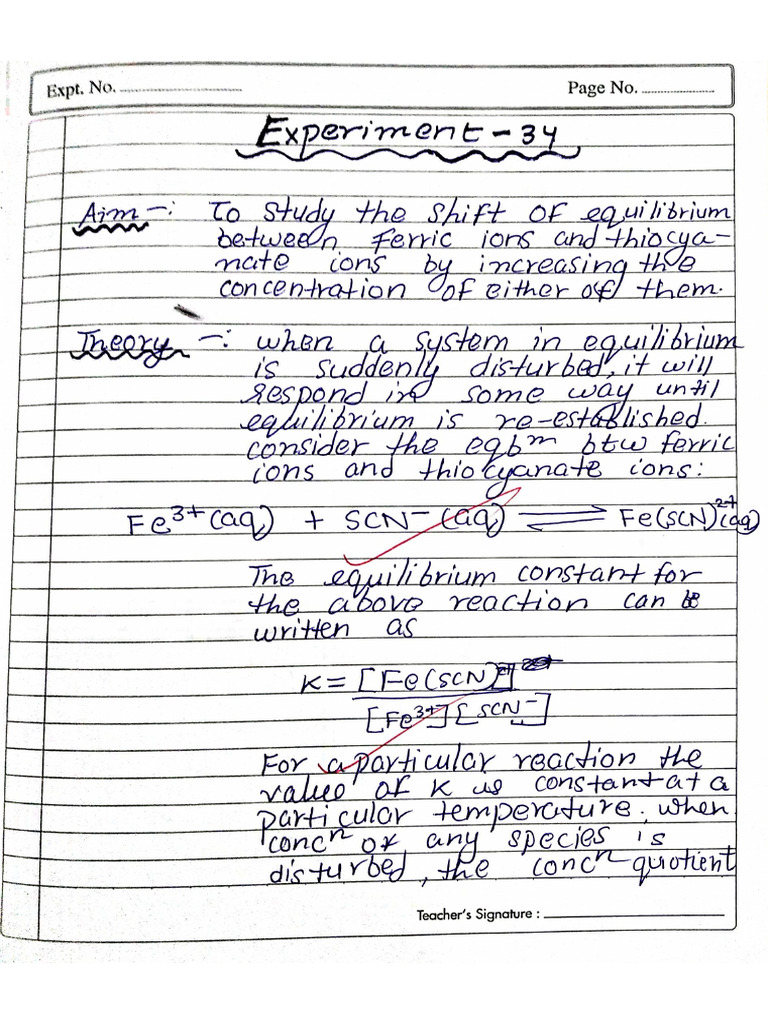 Expt. No.
Page No.
Experiment - 34
Aim -: To study the shift of equilibrium
between ferric ions and thiocya-
nate ions by increasing the
concentration of either of them.
Theory -: when a system in equilibrium
is suddenly disturbed, it will
respond in some way until
equilibrium is re-established.
consider the eqbᵐ btw ferric
ions and thiocyanate ions:
Fe³⁺(aq) + SCN⁻(aq) ⇌ Fe(SCN)²⁺(aq)
The equilibrium constant for
the above reaction can be
written as
K = [Fe(SCN)²⁺]
[Fe³⁺][SCN⁻]
For a particular reaction the
value of K is constant at a
particular temperature. when
concⁿ of any species is
disturbed, the concⁿ quotient
Teacher's Signature :